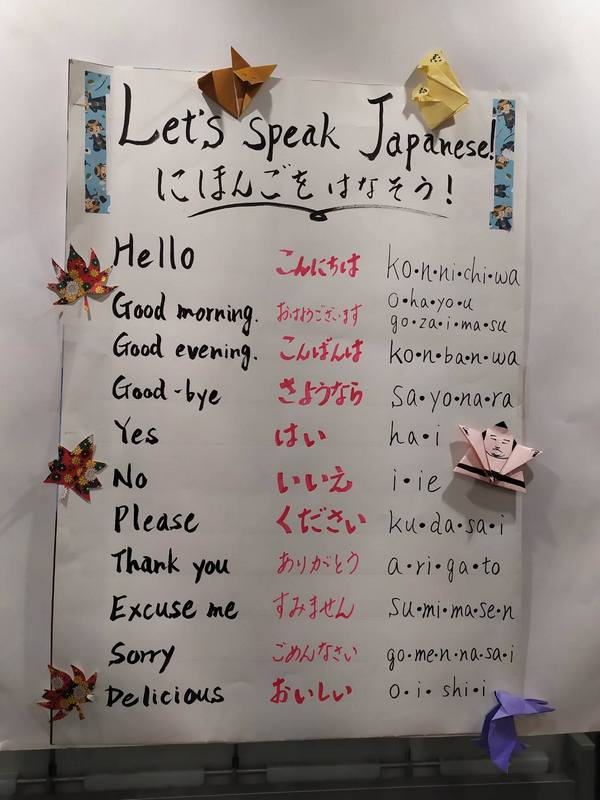 Let's speak Japanese!
にほんごを はなそう!
Hello こんにちは ko・n・ni・chi・wa
Good morning. おはようございます o・ha・yo・u go・za・i・ma・su
Good evening. こんばんは ko・n・ba・n・wa
Good-bye さようなら sa・yo・na・ra
Yes はい ha・i
No いいえ i・ie
Please ください ku・da・sa・i
Thank you ありがとう a・ri・ga・to
Excuse me すみません su・mi・ma・se・n
Sorry ごめんなさい go・me・n・na・sa・i
Delicious おいしい o・i・shi・i